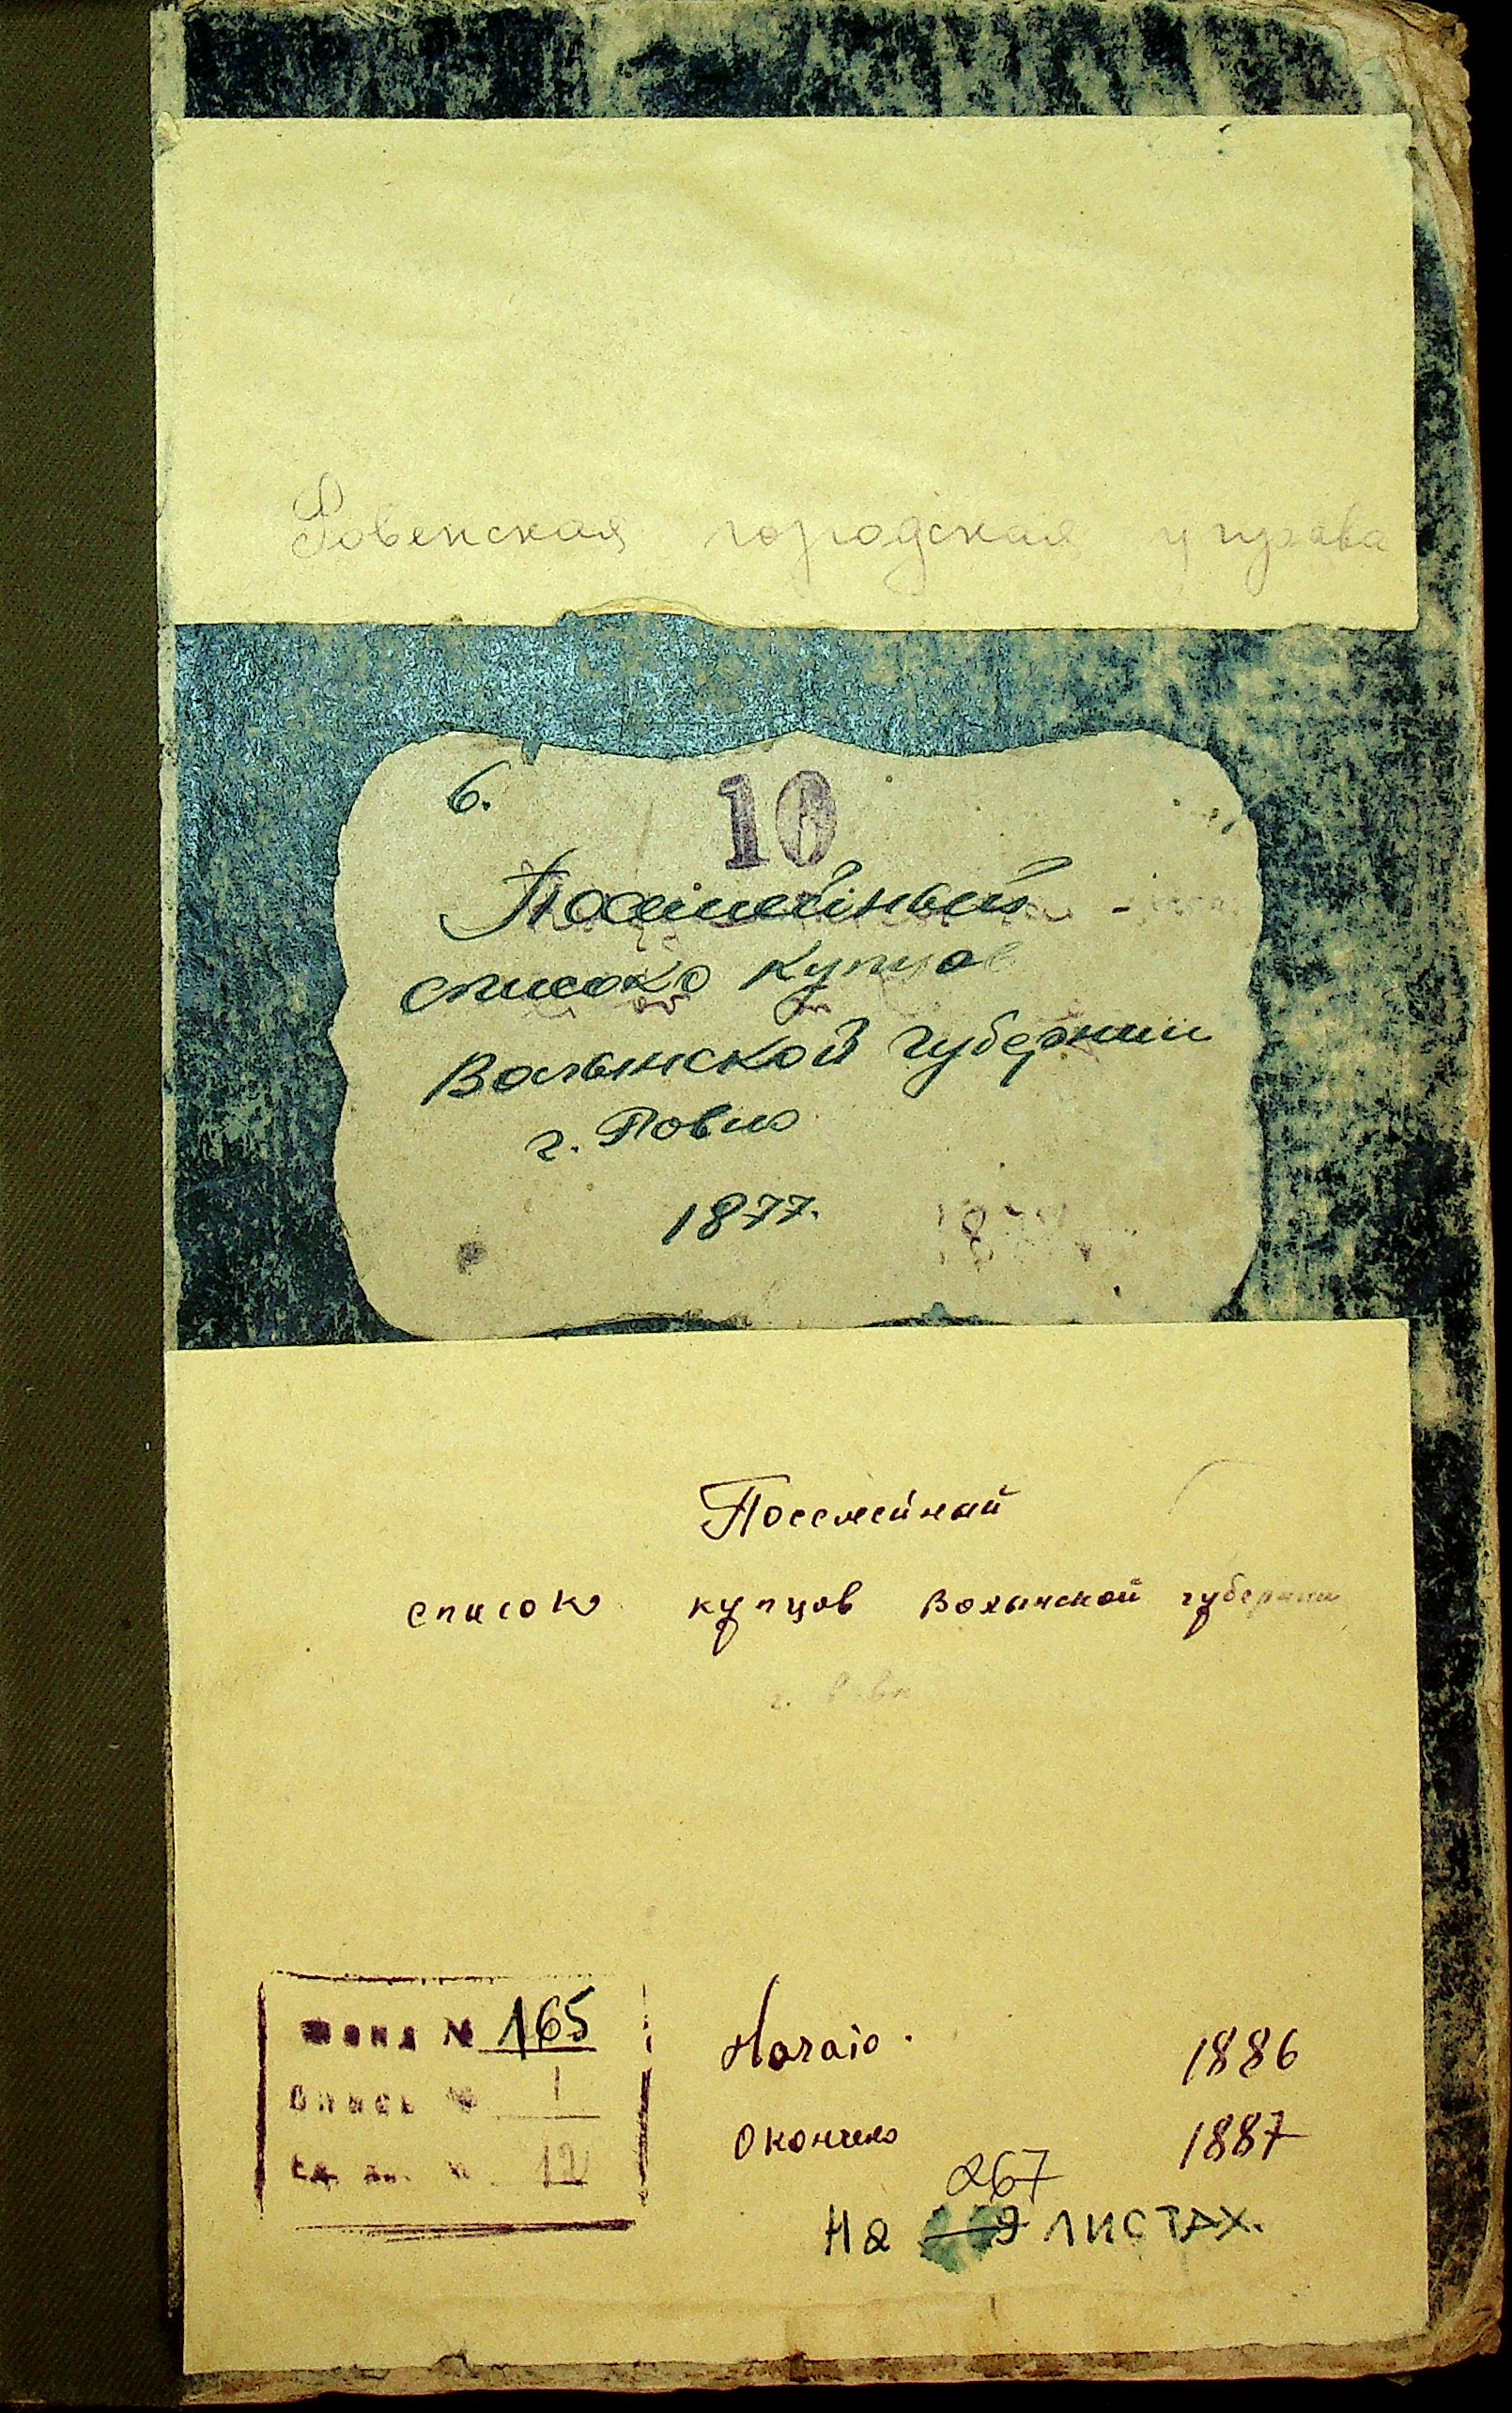 Ровенская городская управа
6.
10
Посемейный
список купцов
Волынской губернии
г. Ровно
1877.
Посемейный
список купцов Волынской губернии
г. Ровн
Фонд № 165
Опись № 1
Ед. хр. № 12
Начато 1886
Окончено 1887
267
На листах.